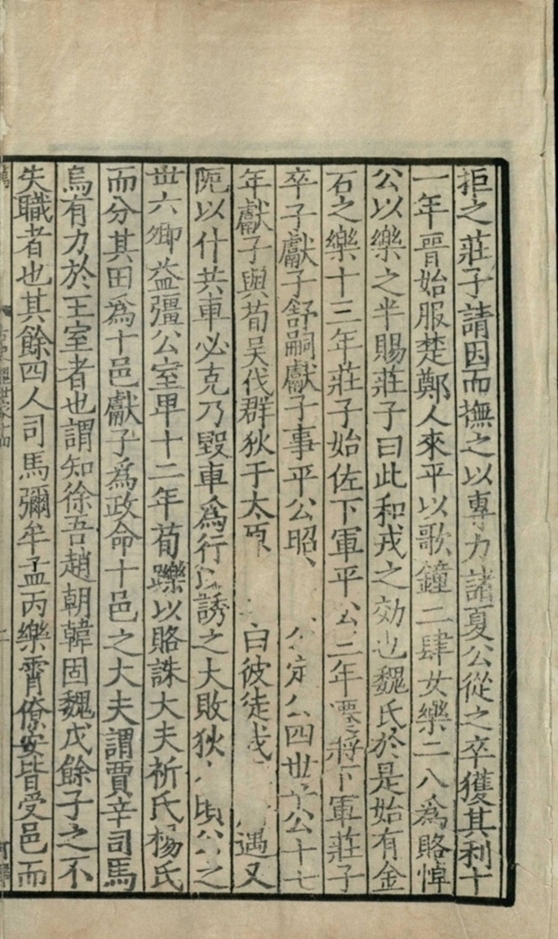 拒之莊子請因而撫之以專力諸夏公從之卒獲其利十
一年晉始服楚鄭人來平以歌鐘二肆女樂二八爲賂悼
公以樂之半賜莊子曰此和戎之効也魏氏於是始有金
石之樂十三年莊子始佐下軍平公三年遷將下軍莊子
卒子獻子舒嗣獻子事平公昭 定公四世平公十七
年獻子與荀吳伐群狄于太原 曰彼徒我 遇又
阨以什共車必克乃毀車爲行以誘之大敗狄 頃公之
世六卿益彊公室卑十二年荀躒以賂誅大夫祈氏楊氏
而分其田爲十邑獻子爲政命十邑之大夫謂賈辛司馬
烏有力於王室者也謂知徐吾趙朝韓固魏戊餘子之不
失職者也其餘四人司馬彌牟孟丙樂霄僚安皆受邑而